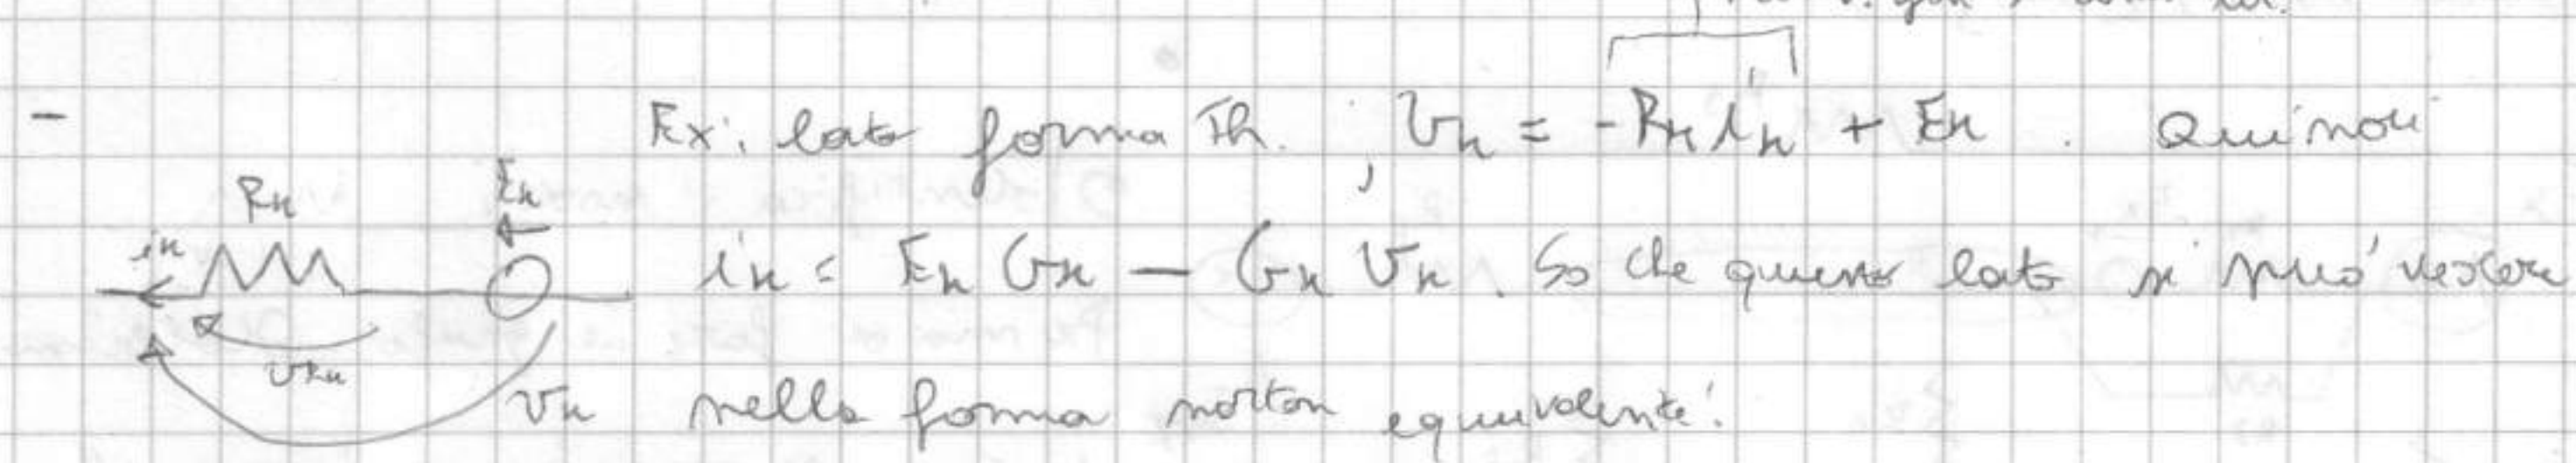 Ex: lato forma Th. ; Vk = -Rk ik + Ek . Quindi
Rk
Ek
ik
ik = Ek Gk - Gk Vk . So che questo lato si può vedere
VRk
Vk
nella forma norton equivalente: